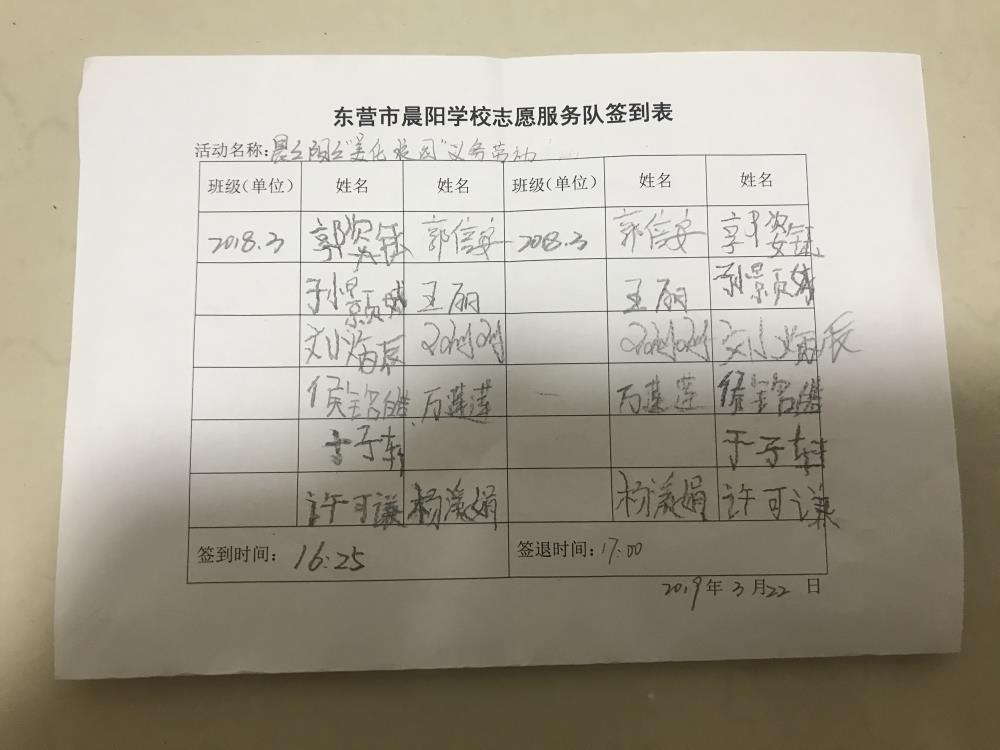 东营市晨阳学校志愿服务队签到表
活动名称:晨之阳之"美化校园"义务劳动
班级(单位) 姓名 姓名 班级(单位) 姓名 姓名
2018.3 郭姿钰 郭信安 2018.3 郭信安 郭姿钰
孙景颐 王丽 王丽 孙景颐
刘炳辰 刘炳辰
侯铭皓 万莲莲 万莲莲 侯铭皓
于子轩 于子轩
许可谦 杨淑娟 杨淑娟 许可谦
签到时间: 16:25 签退时间: 17:00
2019年3月22日